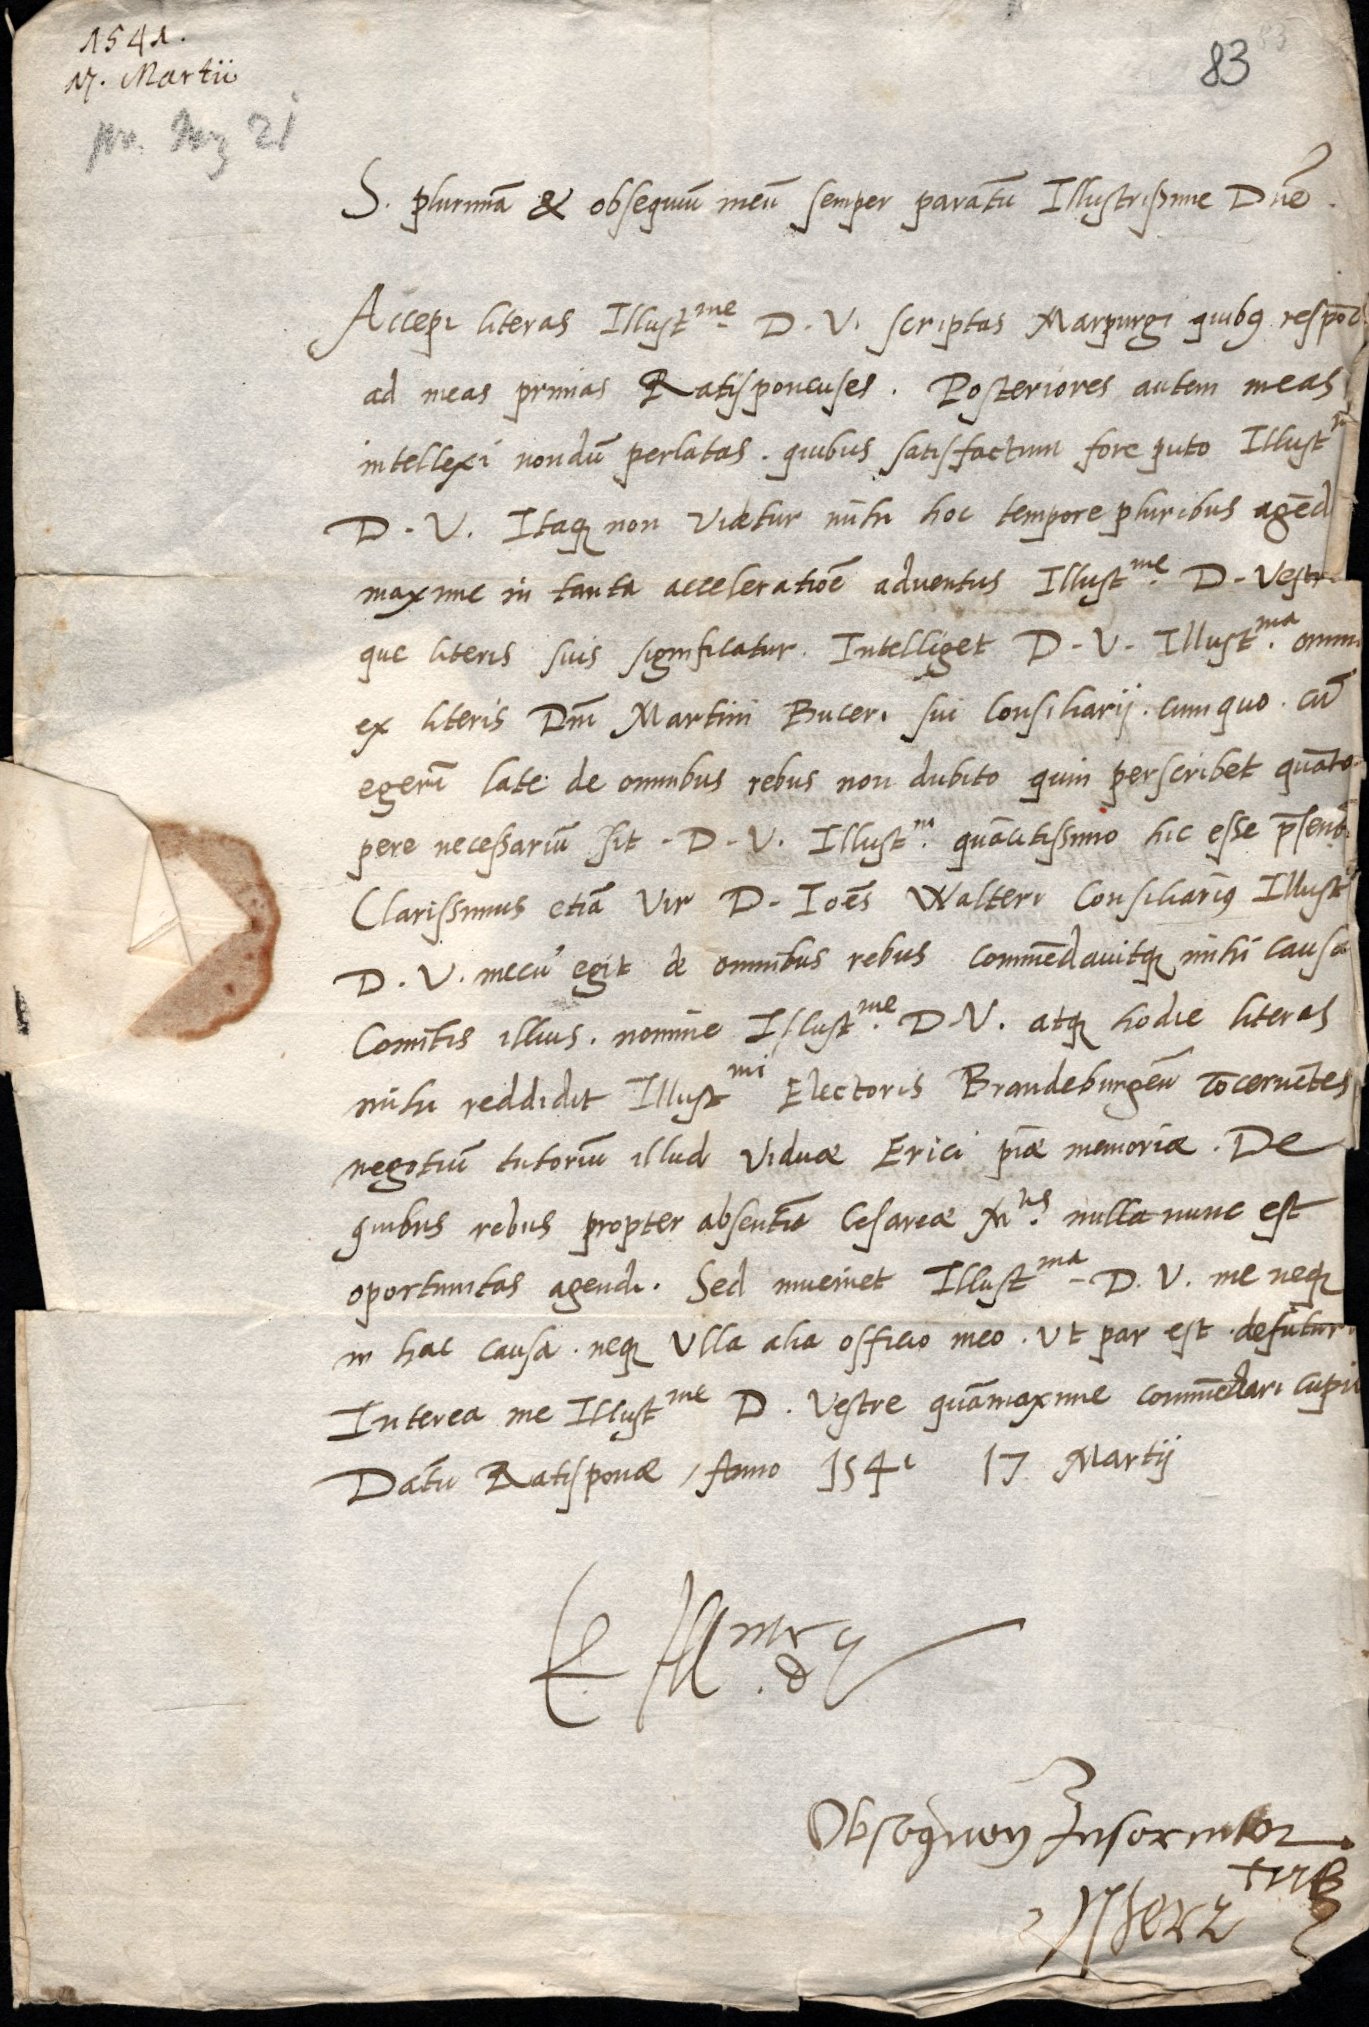 1541.
17. Martii
83
S. plurimā & obsequiū meū semper paratū Illustrissime Dn̄e.
Accepi literas Illustme. D. V. scriptas Marpurgi quibꝯ respōd
ad meas primas Ratisponenses. Posteriores autem meas
intellexi nondū perlatas. quibus satisfactum fore puto Illust
D. V. Itaqꝫ non videtur mihi hoc tempore pluribus agēd
maxime in tanta acceleratiōe aduentus Illustme. D. Vestr
que literis suis significatur. Intelliget D. V. Illustma. omni
ex literis Dn̄i Martini Buceri sui Consiliarij. cum quo. cū
egerī late de omnibus rebus non dubito quin perscribet quāto
pere necessariū sit. D. V. Illustm. quācitissimo hic esse p̄sent
Clarissimus etiā Vir D. Ioēs Walteri Consiliariꝯ Illust
D. V. mecū egit de omnibus rebus commēdauitqꝫ mihi causā
Comitis illius. nomine Illustme. D. V. atqꝫ hodie literas
mihi reddidit Illustmi Electoris Brandeburgeñ cōcernētes
negotiū tutoriū illud Viduæ Erici piæ memoriæ. De
quibus rebus propter absentiā Cesareæ Mtis. nulla nunc est
oportunitas agendi. Sed inueniet Illustma. D. V. me neqꝫ
in hac causa. neqꝫ Vlla alia officio meo. Vt par est. defutur
Interea me Illustme D. Vestre quāmaxime commēdari cupi
Datū Ratisponæ, Anno 1541 17 Martij
E. Illmę
. d